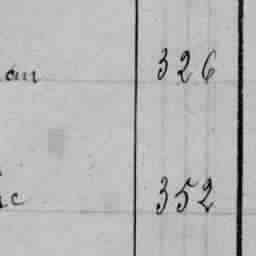 an 326
c 352